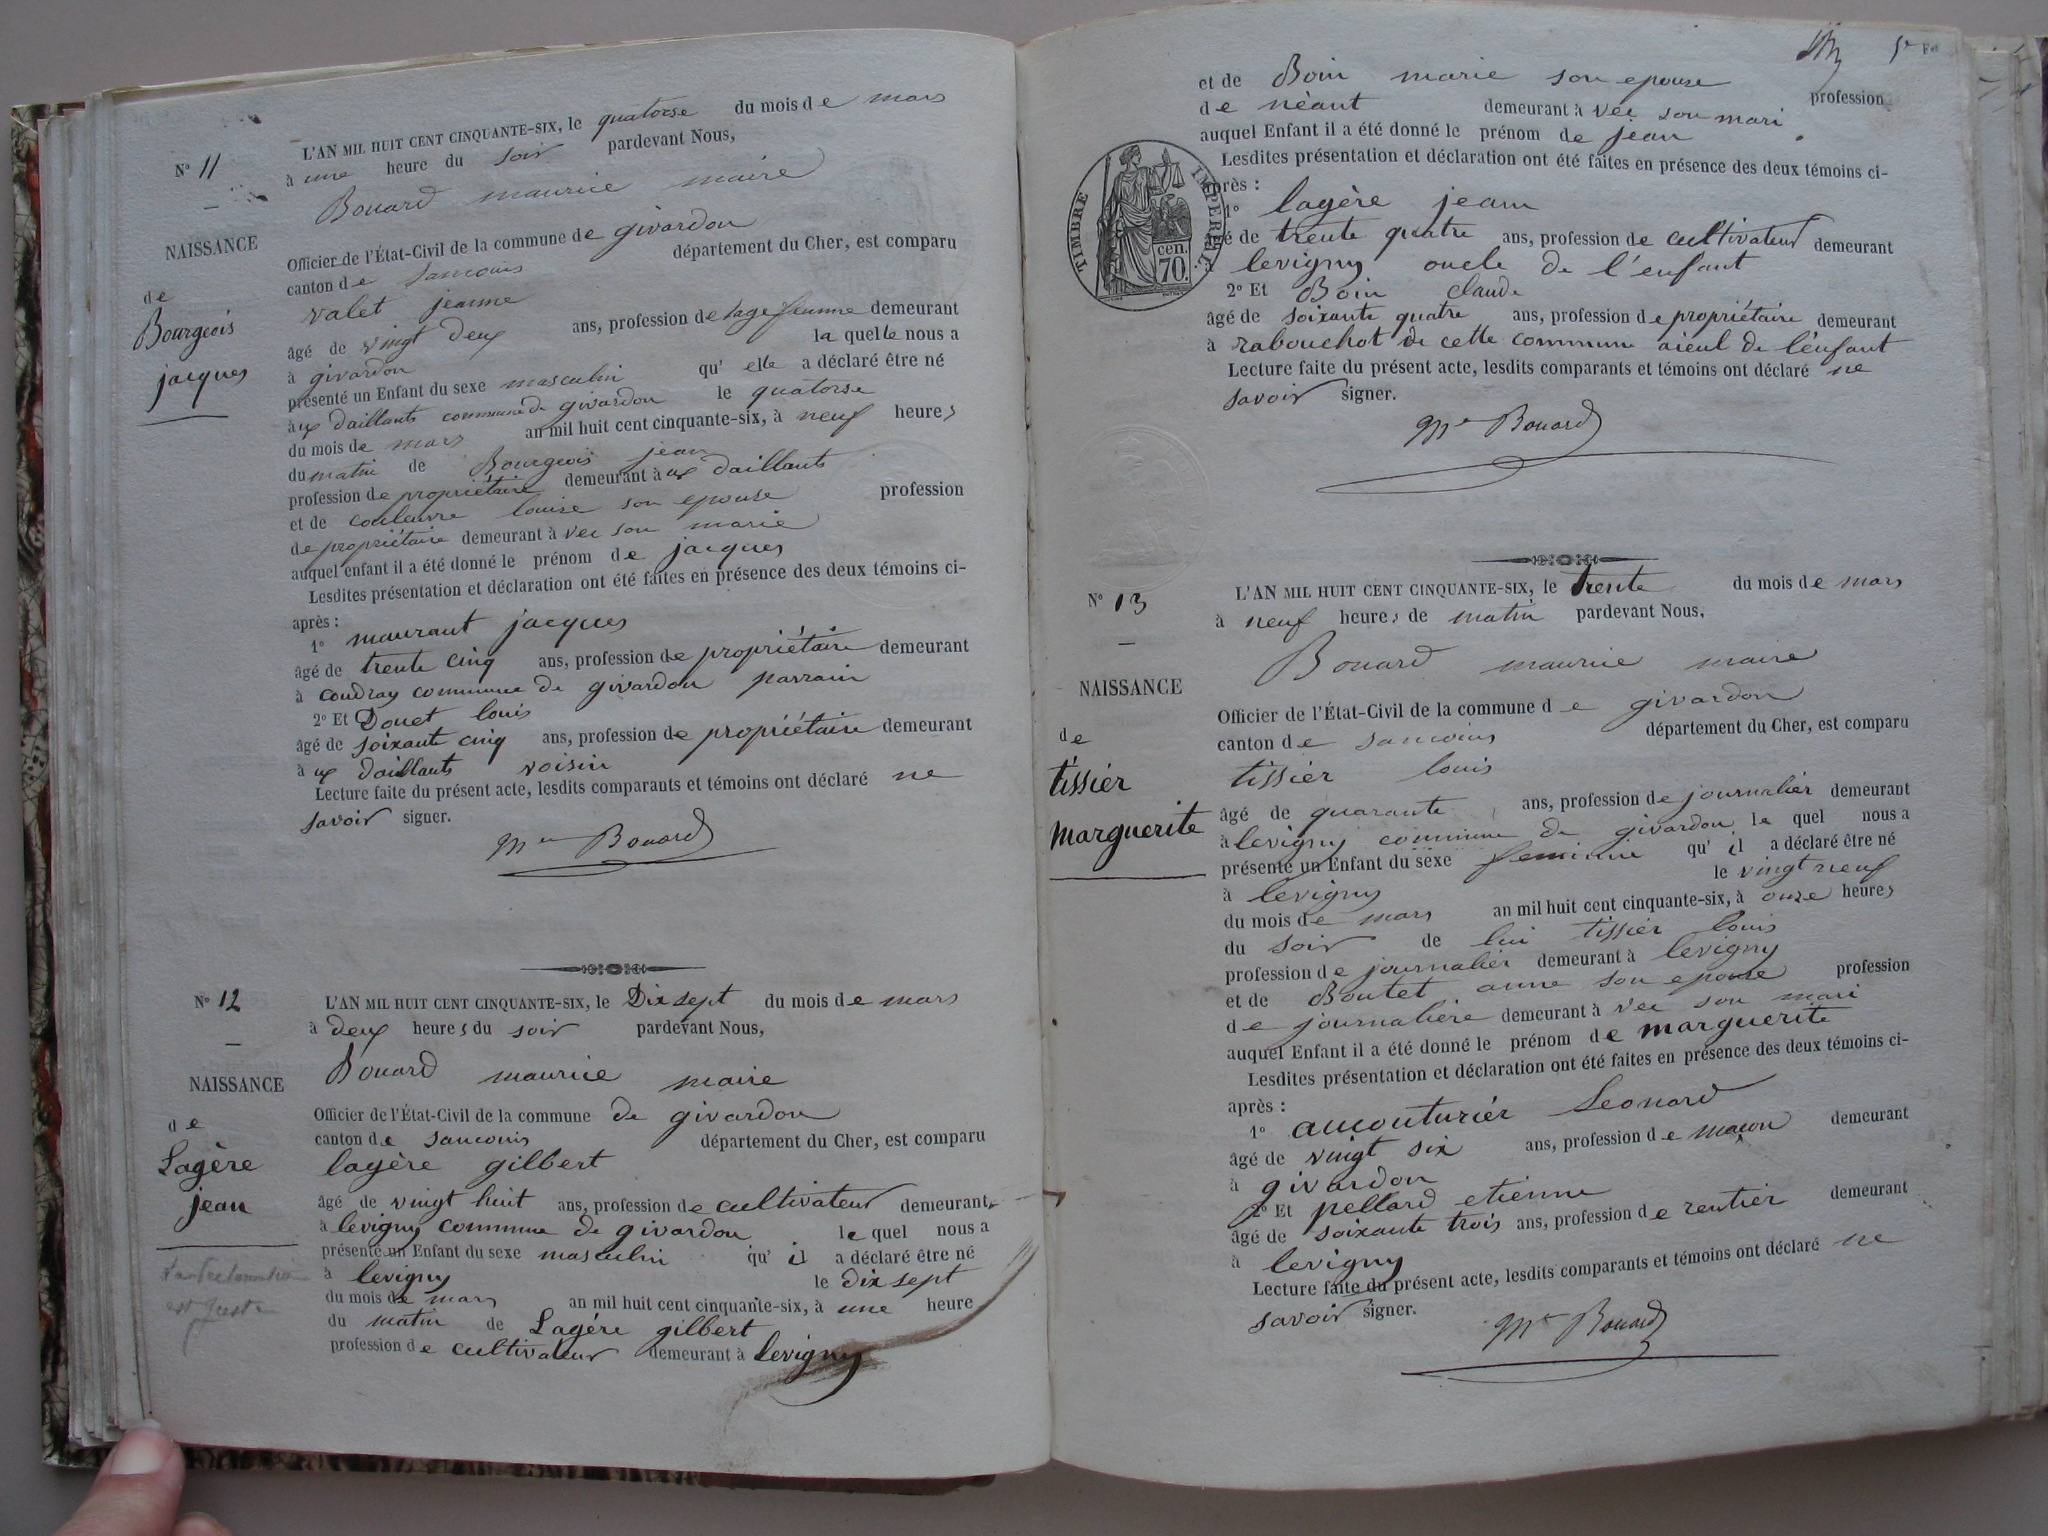 N° 11
NAISSANCE
de
Bourgeois
jacques
L'AN MIL HUIT CENT CINQUANTE-SIX, le quatorse du mois de mars
à une heure du soir pardevant Nous,
Bouard maurice maire
Officier de l'État-Civil de la commune de givardon
canton de Sancoins département du Cher, est comparu
valet jeanne
âgé de vingt deux ans, profession de sage femme demeurant
à givardon la quelle nous a
présenté un Enfant du sexe masculin qu' elle a déclaré être né
à ux daillants commune de givardon le quatorse
du mois de mars an mil huit cent cinquante-six, à neuf heures
du matin de Bourgeois jean
profession de propriétaire demeurant à ux daillants
et de couleuvre louise son epouse profession
de propriétaire demeurant à vec son marie
auquel enfant il a été donné le prénom de jacques
Lesdites présentation et déclaration ont été faites en présence des deux témoins ci-
après :
1° maurant jacques
âgé de trente cinq ans, profession de propriétaire demeurant
à coudray commune de givardon parrain
2° Et Douet louis
âgé de soixante cinq ans, profession de propriétaire demeurant
à ux daillants voisin
Lecture faite du présent acte, lesdits comparants et témoins ont déclaré ne
savoir signer.
Bouard
N° 12
NAISSANCE
de
Lagère
jean
est juste
L'AN MIL HUIT CENT CINQUANTE-SIX, le Dix sept du mois de mars
à deux heures du soir pardevant Nous,
Bouard maurice maire
Officier de l'État-Civil de la commune de givardon
canton de Sancoins département du Cher, est comparu
lagère gilbert
âgé de vingt huit ans, profession de cultivateur demeurant
à levigny commune de givardon le quel nous a
présenté un Enfant du sexe masculin qu' il a déclaré être né
à levigny le dix sept
du mois de mars an mil huit cent cinquante-six, à une heure
du matin de Lagère gilbert
profession de cultivateur demeurant à levigny
5e Fet
et de Boin marie son epouse profession
de nèant demeurant à vec son mari
auquel Enfant il a été donné le prénom de jean
Lesdites présentation et déclaration ont été faites en présence des deux témoins ci-
après :
TIMBRE IMPERIAL.
cen.
70.
1° lagère jean
âgé de trente quatre ans, profession de cultivateur demeurant
à levigny oncle de l'enfant
2° Et Boin claude
âgé de soixante quatre ans, profession de propriétaire demeurant
à rabouchot de cette commune aieul de l'enfant
Lecture faite du présent acte, lesdits comparants et témoins ont déclaré ne
savoir signer.
Bouard
N° 13
NAISSANCE
de
tissiér
marguerite
L'AN MIL HUIT CENT CINQUANTE-SIX, le trente du mois de mars
à neuf heures de matin pardevant Nous,
Bouard maurice maire
Officier de l'État-Civil de la commune de givardon
canton de Sancoins département du Cher, est comparu
tissiér louis
âgé de quarante ans, profession de journaliér demeurant
à levigny commune de givardon le quel nous a
présenté un Enfant du sexe feminin qu' il a déclaré être né
à levigny le vingt neuf
du mois de mars an mil huit cent cinquante-six, à onze heures
du soir de lui tissiér louis
profession de journaliér demeurant à levigny
et de Boutet anne son epouse profession
de journaliére demeurant à vec son mari
auquel Enfant il a été donné le prénom de marguerite
Lesdites présentation et déclaration ont été faites en présence des deux témoins ci-
après :
1° aucouturiér Leonard
âgé de vingt six ans, profession de maçon demeurant
à givardon
2° Et pellard etienne
âgé de soixante trois ans, profession de rentiér demeurant
à levigny
Lecture faite du présent acte, lesdits comparants et témoins ont déclaré ne
savoir signer.
Bouard